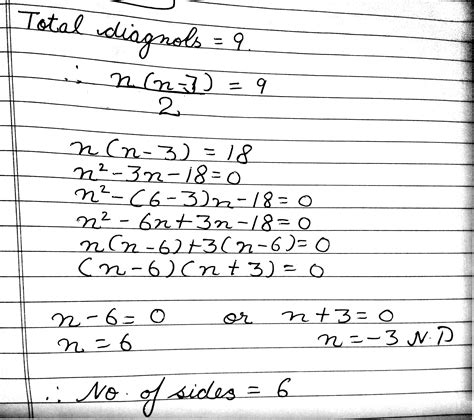 Total diagnols = 9.
∴ n(n-3)/2 = 9
n(n-3) = 18
n²-3n-18=0
n²-(6-3)n-18=0
n²-6n+3n-18=0
n(n-6)+3(n-6)=0
(n-6)(n+3) = 0
n-6=0 or n+3=0
n = 6 n=-3 N.P
∴ No. of sides = 6